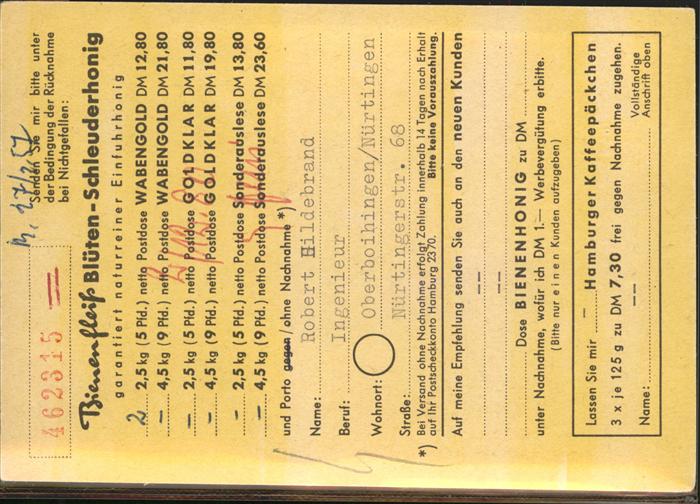 462315
M. 27/2.57
Senden Sie mir bitte unter
der Bedingung der Rücknahme
bei Nichtgefallen:
Bienenfleiß Blüten-Schleuderhonig
garantiert naturreiner Einfuhrhonig
2 2,5 kg (5 Pfd.) netto Postdose WABENGOLD DM 12,80
— 4,5 kg (9 Pfd.) netto Postdose WABENGOLD DM 21,80
— 2,5 kg (5 Pfd.) netto Postdose GOLDKLAR DM 11,80
— 4,5 kg (9 Pfd.) netto Postdose GOLDKLAR DM 19,80
— 2,5 kg (5 Pfd.) netto Postdose Sonderauslese DM 13,80
— 4,5 kg (9 Pfd.) netto Postdose Sonderauslese DM 23,60
und Porto gegen/ohne Nachnahme *)
Name: Robert Hildebrand
Beruf: Ingenieur
Wohnort: Oberboihingen/Nürtingen
Straße: Nürtingerstr. 68
*) Bei Versand ohne Nachnahme erfolgt Zahlung innerhalb 14 Tagen nach Erhalt
auf Ihr Postscheckkonto Hamburg 2370. Bitte keine Vorauszahlung.
Auf meine Empfehlung senden Sie auch an den neuen Kunden
Dose BIENENHONIG zu DM
unter Nachnahme, wofür ich DM 1.— Werbevergütung erbitte.
(Bitte nur einen Kunden aufzugeben)
Lassen Sie mir — Hamburger Kaffeepäckchen
3 x je 125 g zu DM 7,30 frei gegen Nachnahme zugehen.
Name: —
Vollständige
Anschrift oben